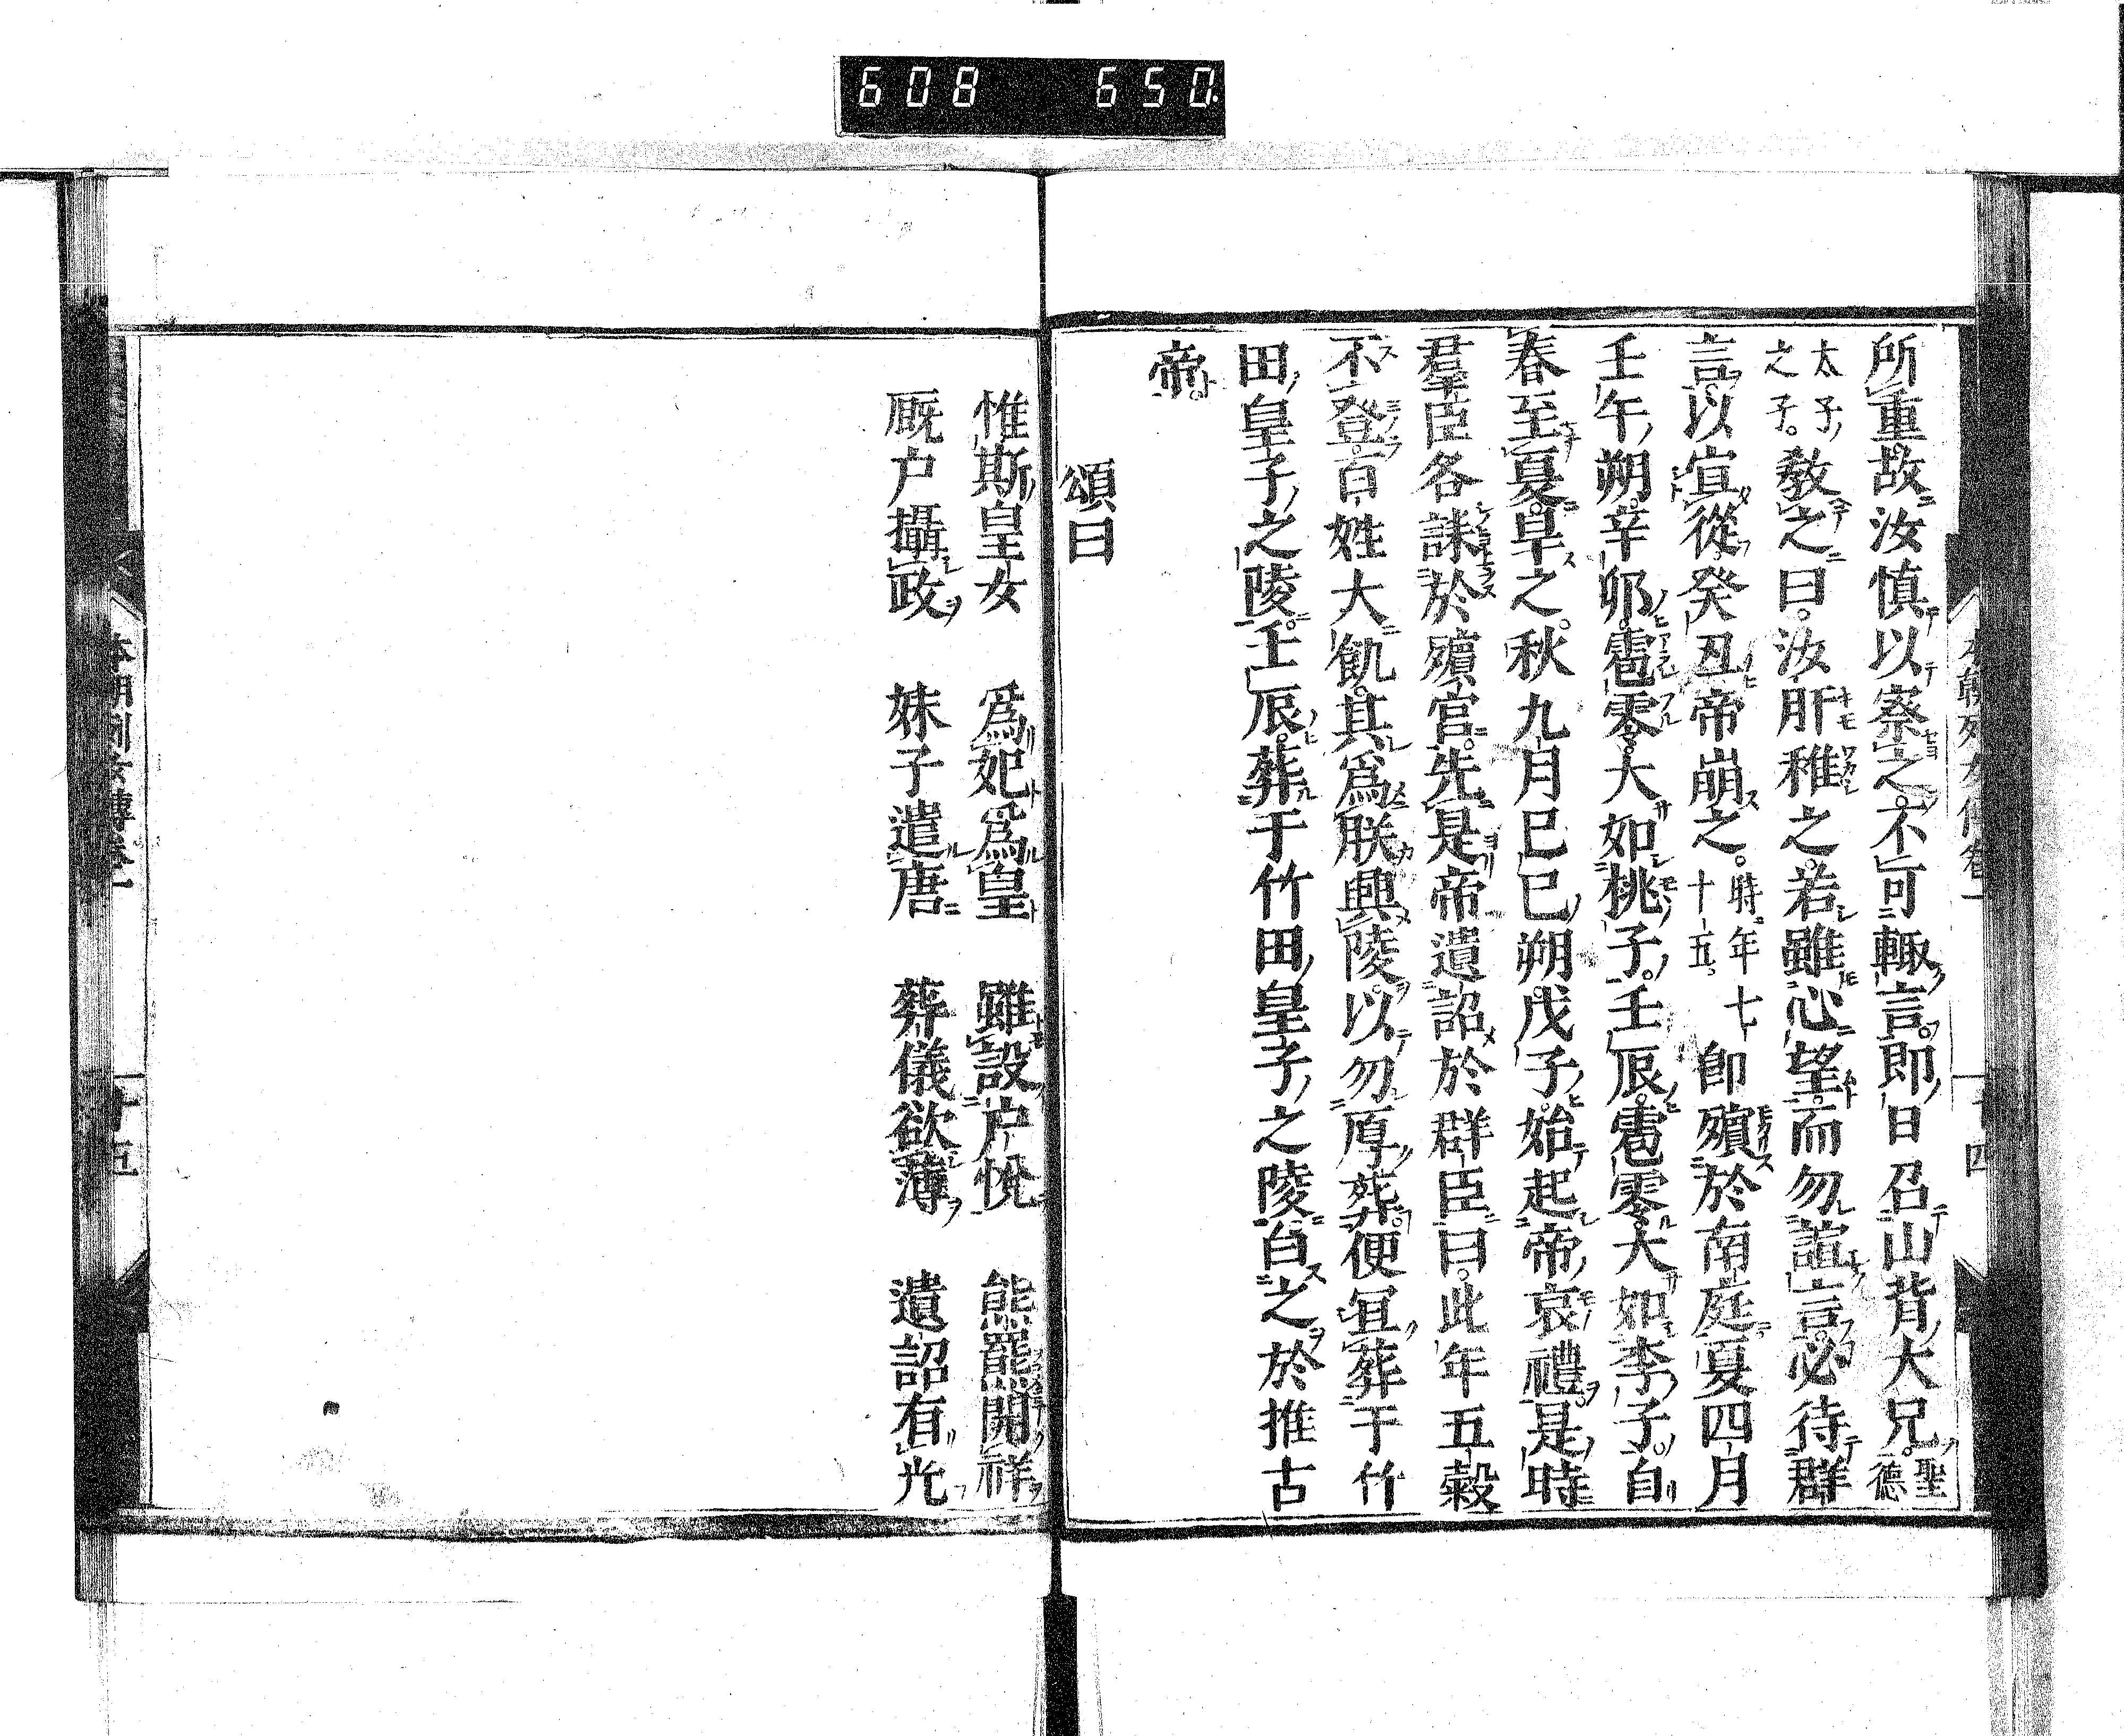 608 650.
所重故汝慎以察之不可輙言。即日召山背大兄。聖德
太子之子。教之曰。汝肝稚之。若雖心望。而勿諠言。必待群
言。以宜從癸丑帝崩之。時年七十五。即殯於南庭夏四月
壬午朔。辛卯。雹零。大如桃子。壬辰。雹零。大如李子。自
春至夏。旱之。秋九月己巳朔。戊子。始起帝哀禮。是時
羣臣各誄於殯宮。先是帝遺詔於群臣曰。此年五穀
不登。百姓大飢。其爲朕興陵。以勿厚葬。便宜葬于竹
田皇子之陵。壬辰。葬于竹田皇子之陵。白之於推古
帝。
頌曰
惟斯皇女 爲妃爲皇 雖設户悅 熊羆開祥
厩户攝政 妹子遣唐 葬儀欲薄 遺詔有光